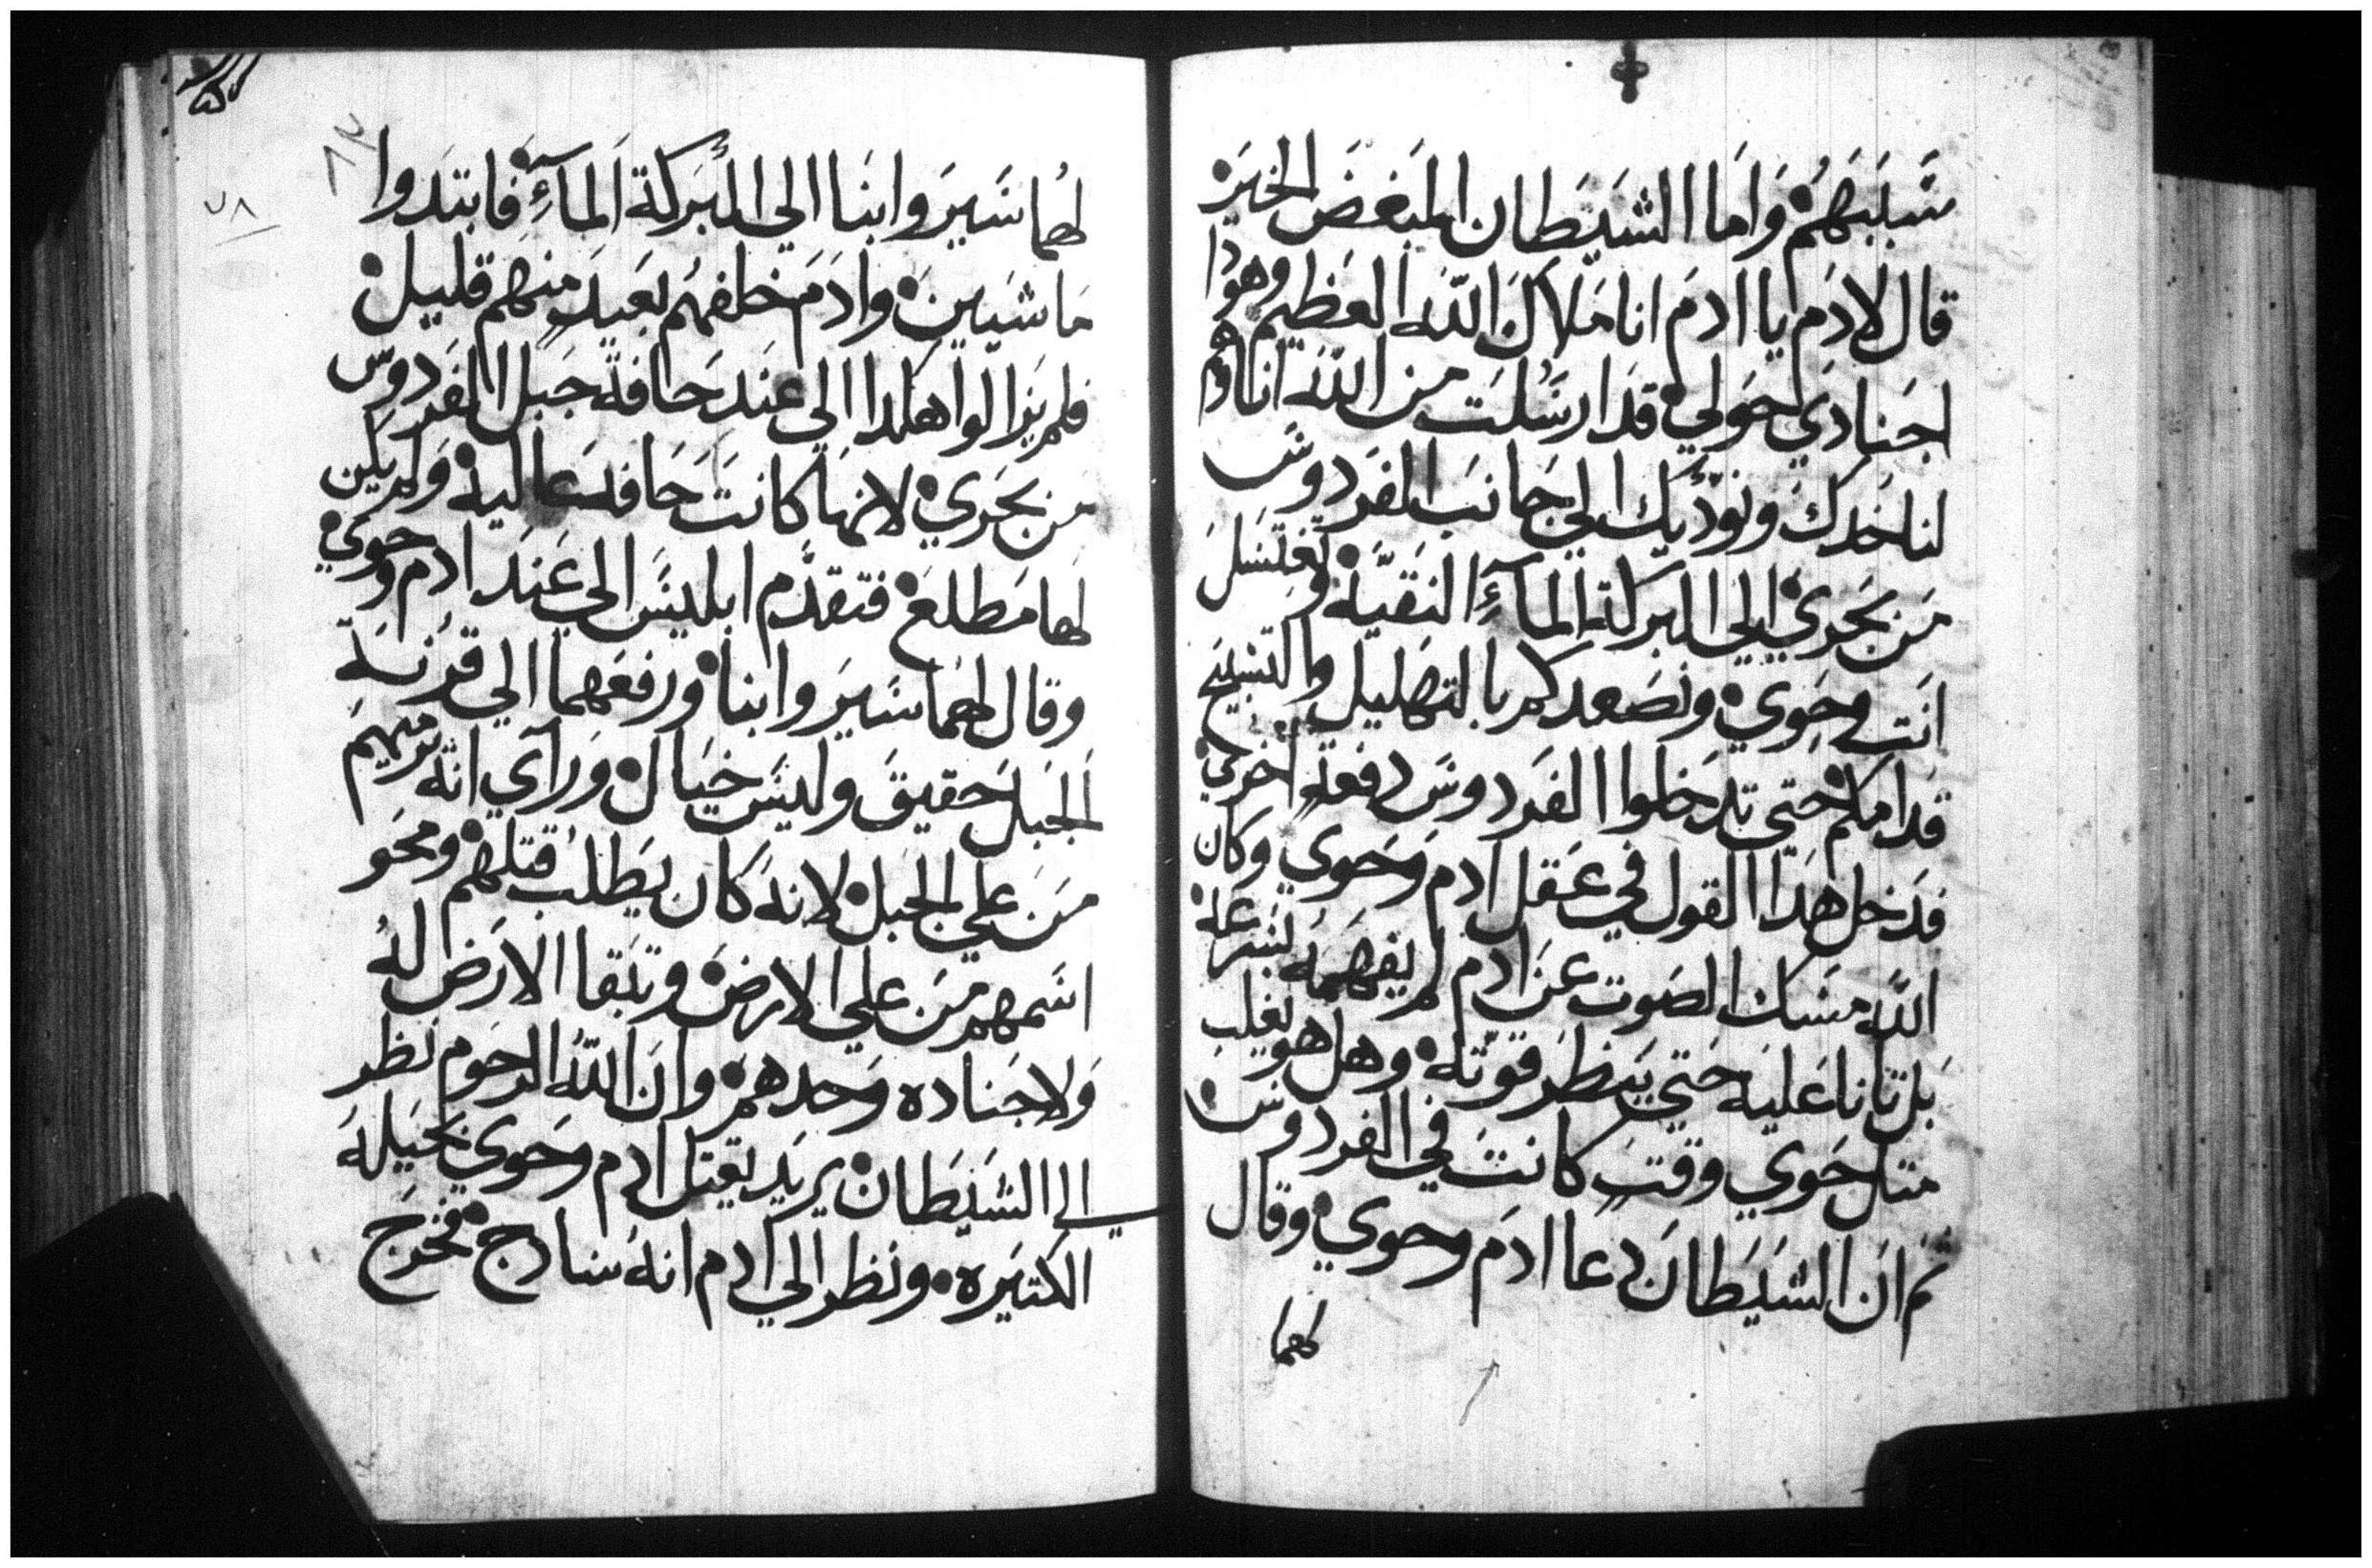 سَببَهمُ وَاما الشيَطان المبَغضَ الخيَر
قال لادَم يا ادمَ انا مَلاكَ اللّه العظيم وهودا
اجنادي حَولي قدَ ارسَلت من اللّه انا وهم
لناخدك ونودّيك الي جانبَ الفرَدوسَ
مَن بحَري الي البركة المآءِ النقيَّة وتغتسَل
انَت وحَوي ونصَعدكم بالتهَليل والتسَبيَح
قدامكم حتي تدَخلوا الفرَدوسَ دفعة اخري
فدَخل هَدا القول في عَقل ادم وَحَوي وكان
اللّه مسَك الصَوت عنَ ادم لم يفهَمهُ بسَرعة
بَل تانا عَليه حَتي يَنظرَ قوّته وهل هو يغلب
متل حَوي وقتَ كانتَ في الفردوسَ
تم انَ الشيَطانَ دعا ادمَ وحوي وقال
لهما
٧٨
لهُما سَيرَوا بنَا الي البرَكة المآءِ فابتدَوا
مَاشيَينَ وادَمَ خلفهمُ بعَيدَ منهم قليل
فلم يزالوا هكدا الي عنَد حَافة جَبل الفرَدوسّ
من بحَري لانهَا كانتَ حَافة عَاليه وَلم يكن
لهَا مَطلعَ فتقدَّم ابليسَ الي عَندَ ادم وحوي
وقال لهُما سَيرَوا بنا ورفعَهما الي قرنَة
الجَبل حَقيق وليسَ خيَال ورَآي انه يرميهَم
مَن علي الجبَل لانهَ كان يطَلب قتلهم ومحَو
اسَمهم مَن علي الارضَ وتبَقا الارَض لهُ
وَلاجَناده وَحدهم وانَ اللّهُ الرحَوم نظر
الي الشيَطان يريَد يقتل ادم وحَوي بحيَلهَ
الكتيَره ونَظر الي ادم انهُ سَادج فخرَج